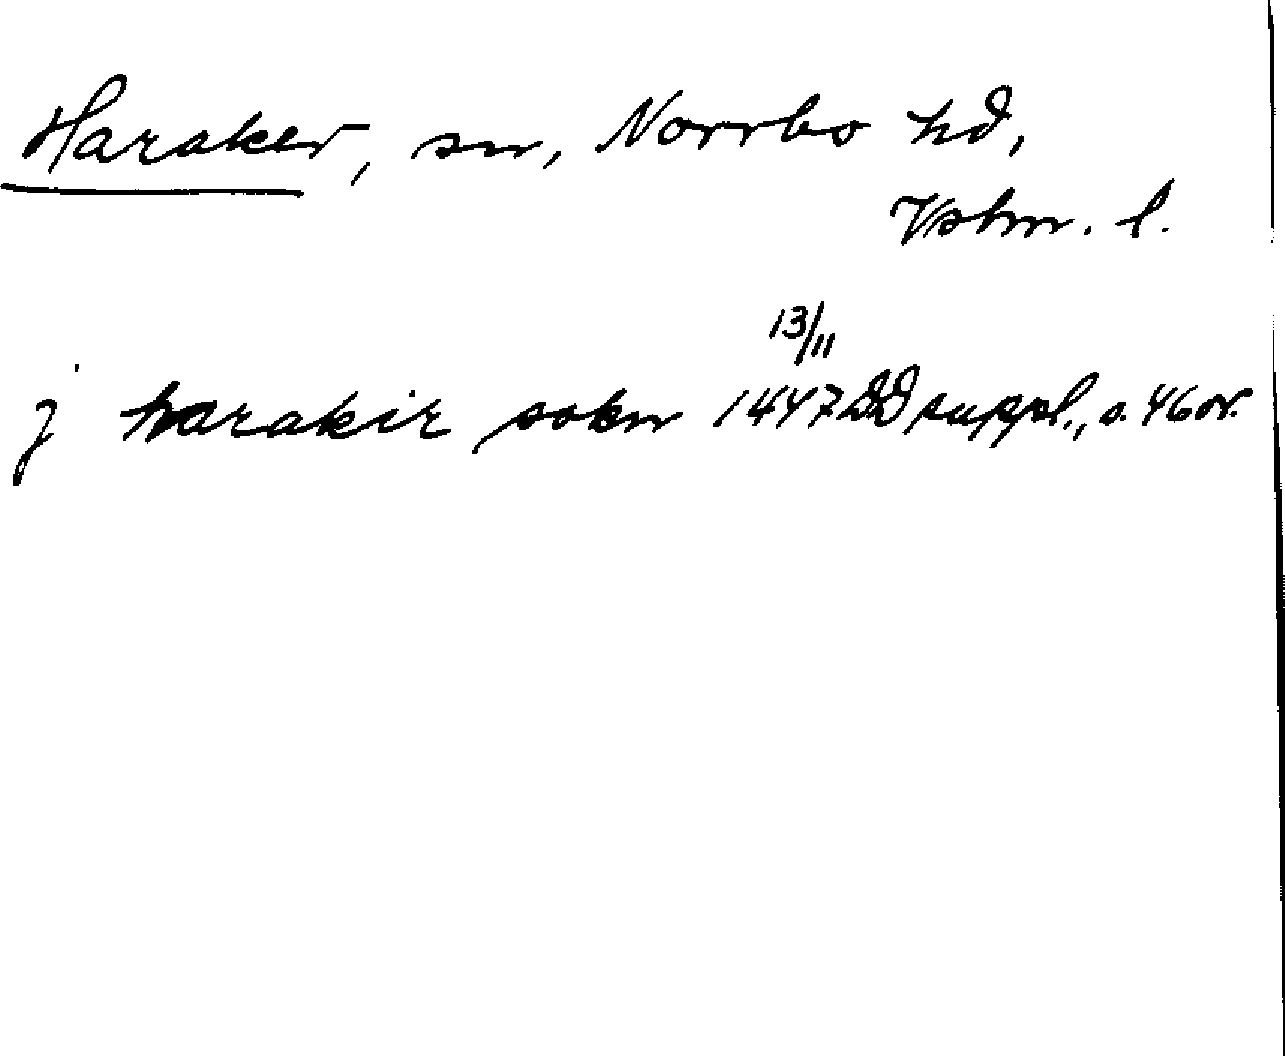 Haraker, sn, Norrbo hd,
Vstm. l.
13/11
j harakir sokn 1447 DD suppl., s. 46 or.